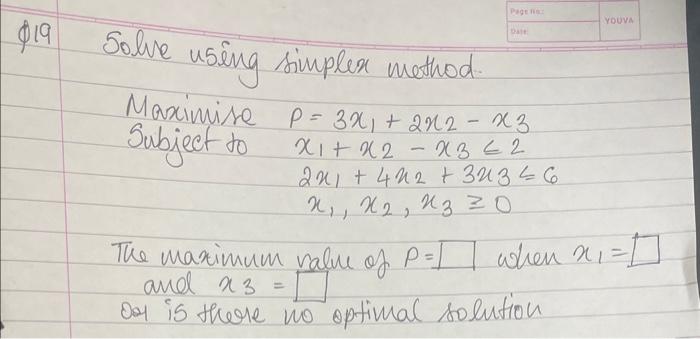 Page No.:
YOUVA
Date:
Q19 Solve using simplex method.
Maximise P = 3x1 + 2x2 - x3
Subject to x1 + x2 - x3 ≤ 2
2x1 + 4x2 + 3x3 ≤ 6
x1, x2, x3 ≥ 0
The maximum value of P = □ when x1 = □
and x3 = □
Or is there no optimal solution